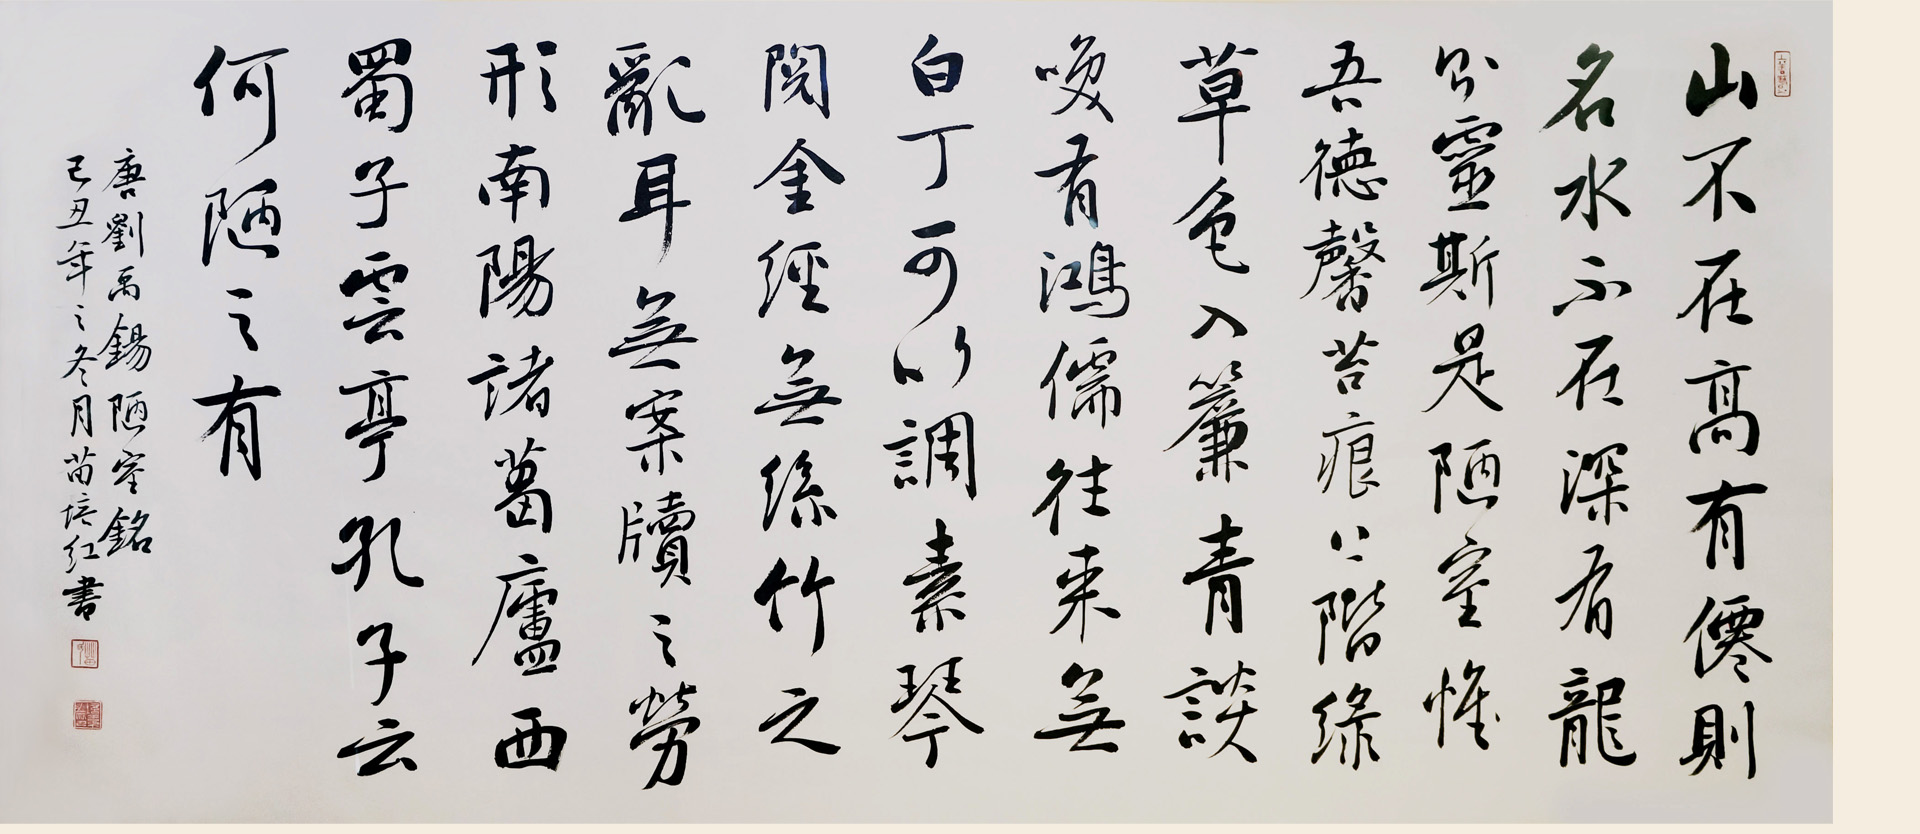 山不在高有僊則
名水不在深有龍
則靈斯是陋室惟
吾德馨苔痕上階緑
草色入簾青談
有鴻儒往来無
白丁可以調素琴
閱金經無絲竹之
亂耳無案牘之勞
形南陽諸葛廬西
蜀子雲亭孔子云
何陋之有
唐劉禹錫陋室銘
己丑年之冬月苗培红書